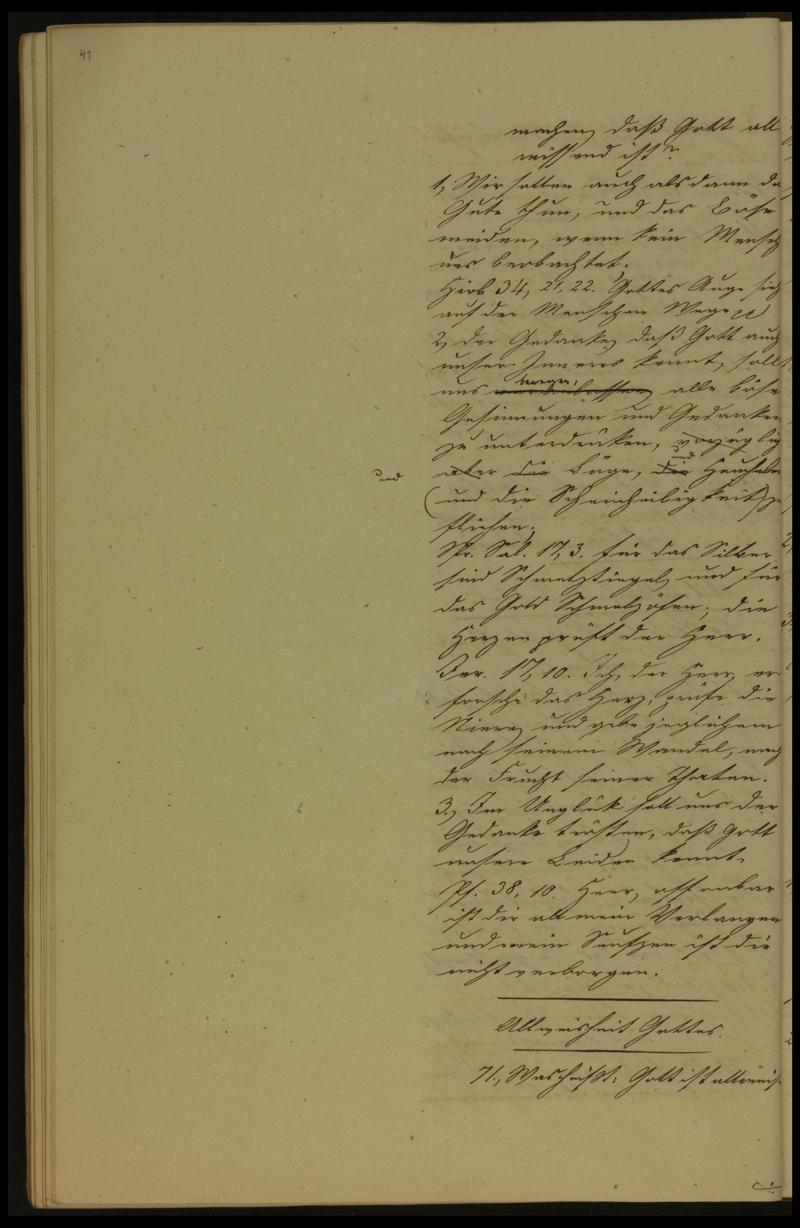 41
machen, daß Gott all
wissend ist?
1, Wir sollen auch alsdann da
Gute thun, und das Böse
meiden, wenn kein Mensch
uns beobachtet.
Hiob 34, 21, 22. Gottes Auge sieh
auf der Menschen Wege
2, der Gedanke, daß Gott auch
unser Inneres kennt, soll
bewegen,
uns veranlassen, alle böse
Gesinnungen und Gedanken
zu unterdrüken, vorzüglich
und
aber die Lüge, die Heuchelei
und
(und die Scheinheiligkeit) zu
fliehen.
Spr. Sal. 17, 3. für das Silber
sind Schmelztiegel, und für
das Gold Schmelzöfen; die
Herzen prüft der Herr.
Jer. 17, 10. Ich, der Herr, er
forsche das Herz, prüfe die
Nieren, und gebe jeglichem
nach seinem Wandel, nach
der Frucht seiner Thaten.
3, Im Unglük soll uns der
Gedanke trösten, daß Gott
unsere Leiden kennt.
Ps. 38, 10. Herr, offenbar
ist dir all mein Verlangen
und mein Seufzen ist dir
nicht verborgen.
Allweisheit Gottes.
71, Was heißt: Gott ist allweis